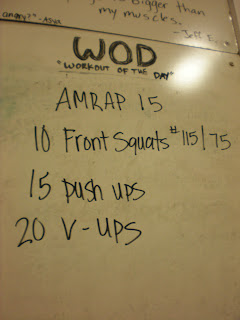 bigger than
my muscles.
angry?" -Asya
- Jeff
WOD
"WORKOUT OF THE DAY"
AMRAP 15
10 Front Squats #115/75
15 push ups
20 V-UPS